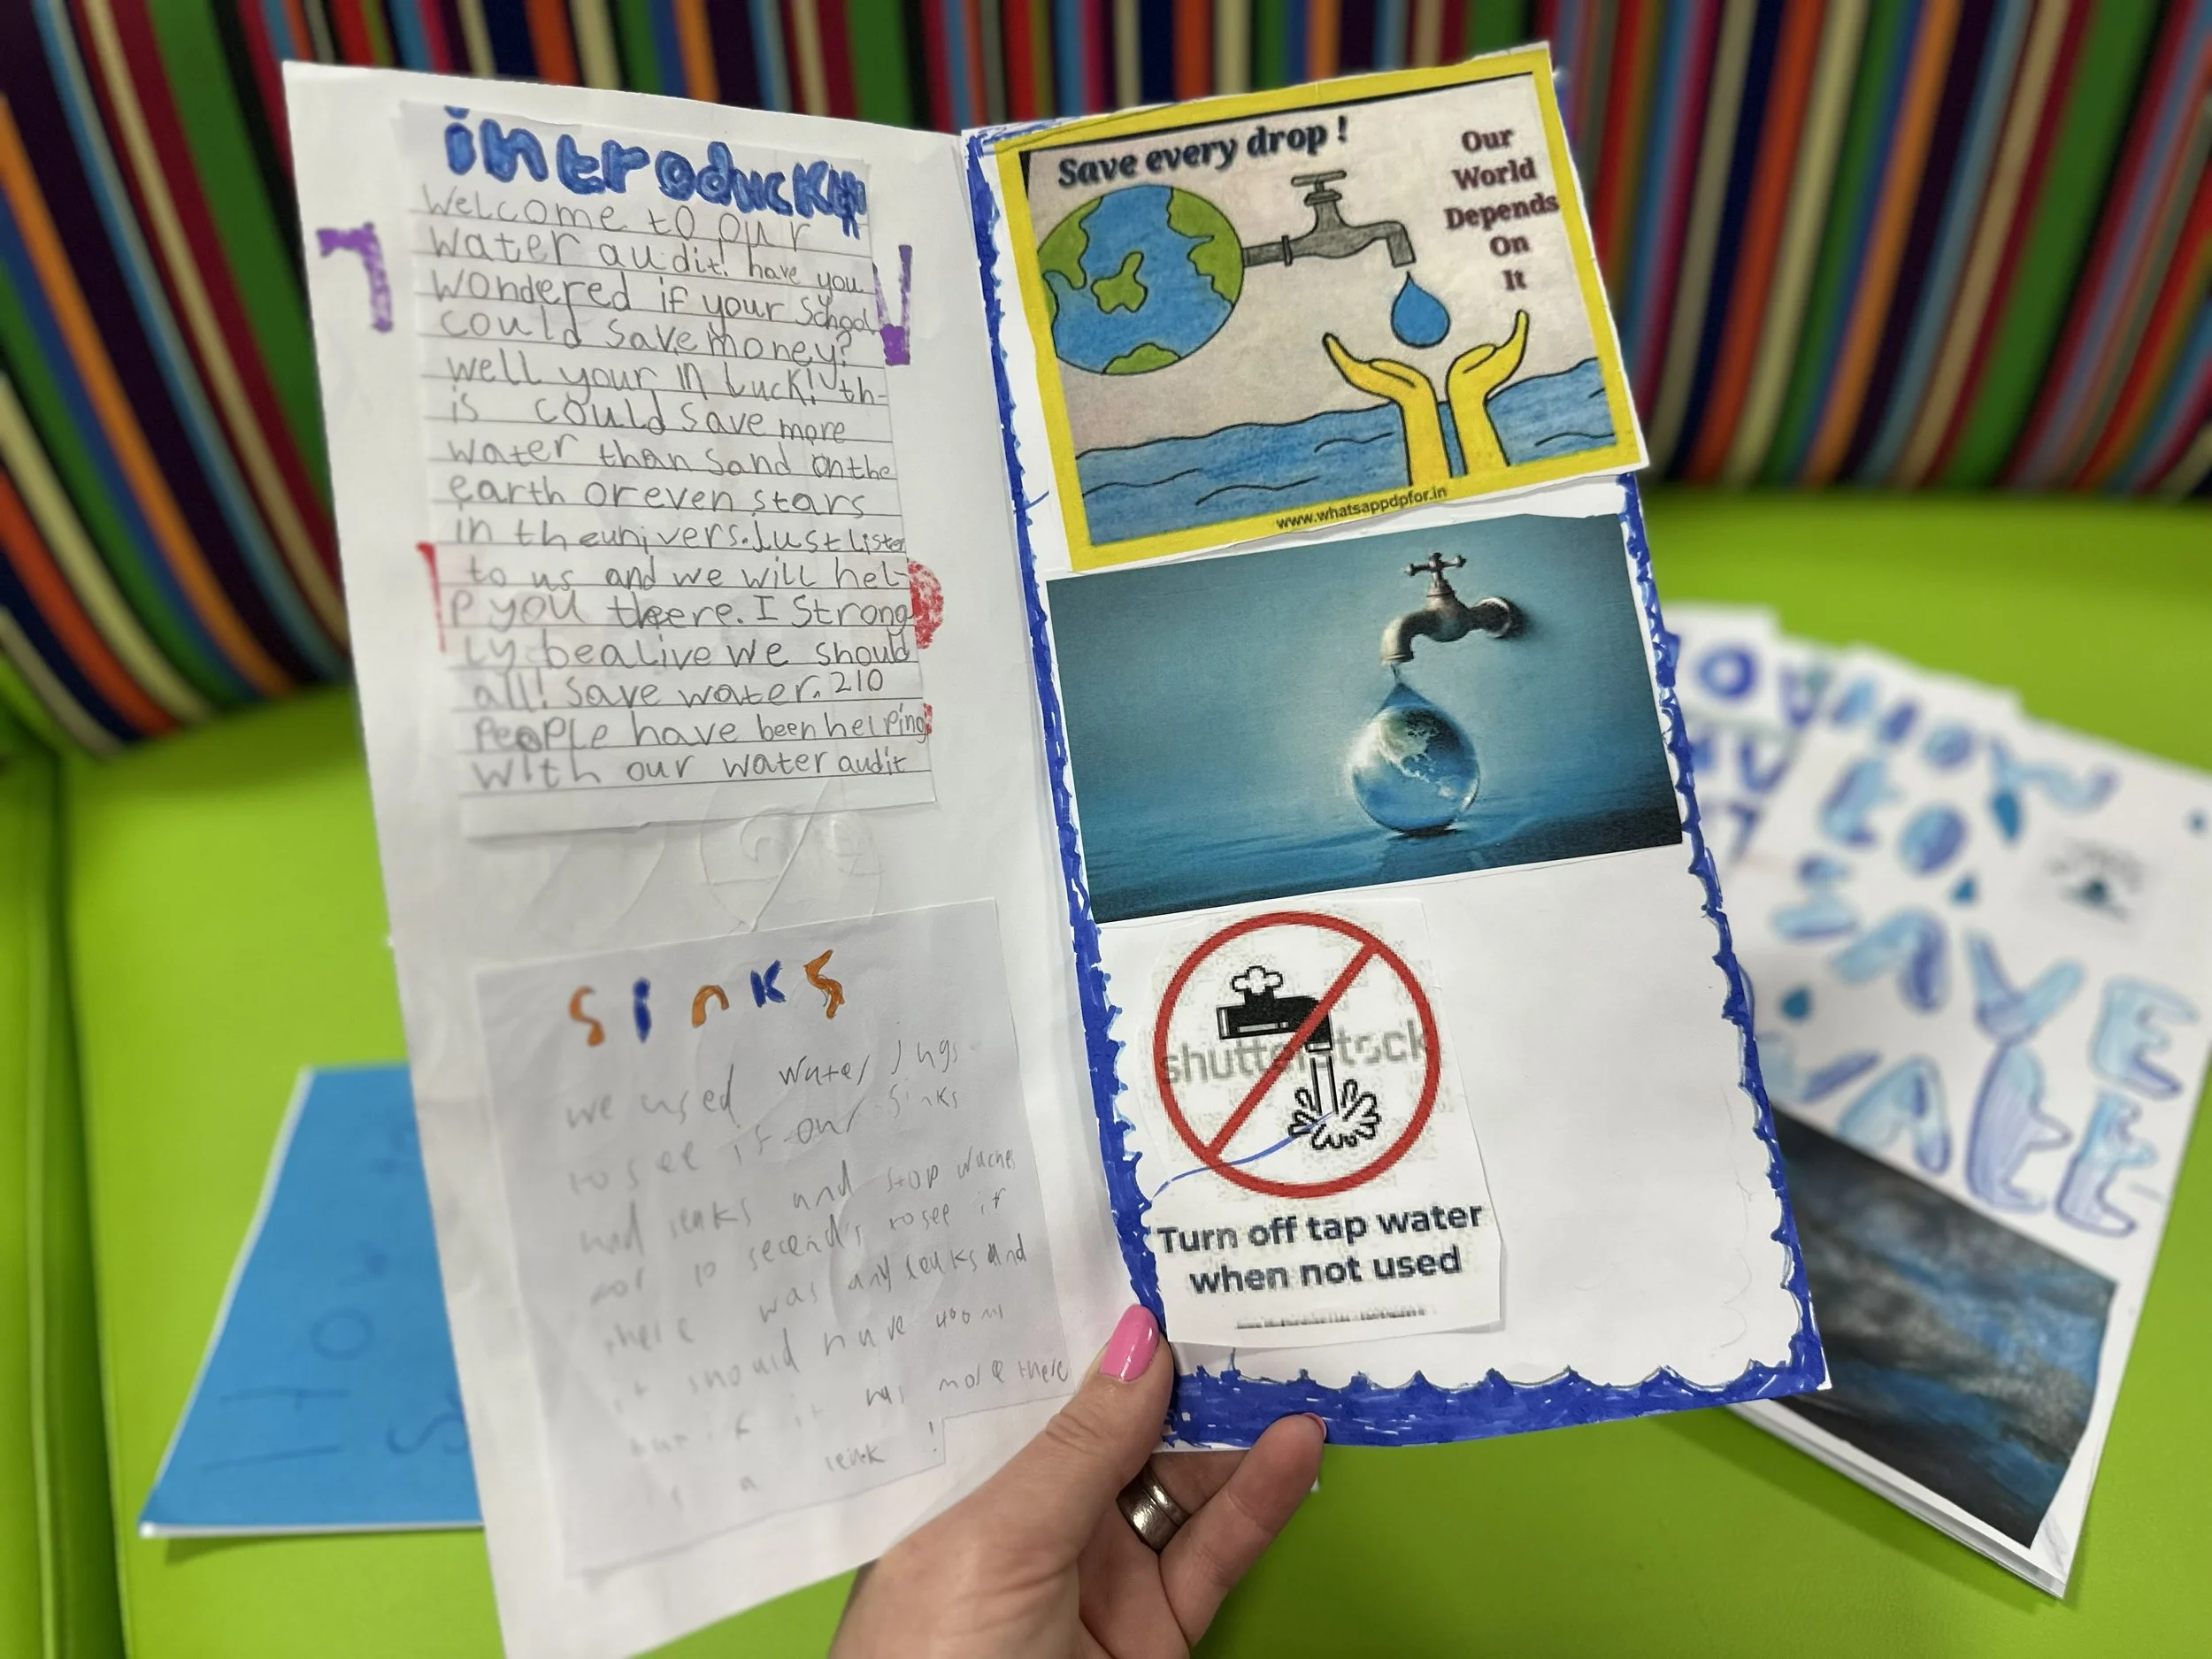 introducktı
Welcome to our
water audit! have you
wondered if your school
could save money?
well your in luck! th-
is could save more
water than sand on the
earth or even stars
in the univers. Just listen
to us and we will hel-
p you there. I strong
ly bealive we should
all! save water. 210
people have been helping
with our water audit
sinks
we used water jugs
to see if our sinks
had leaks and stop waches
for 10 second's to see if
there was any leaks and
it should have 400 ml
but if it was more there
is a leak!
Save every drop !
Our
World
Depends
On
It
www.whatsappdpfor.in
shutterstock
Turn off tap water
when not used
How to
S
HOW
to
SAVE
WATE